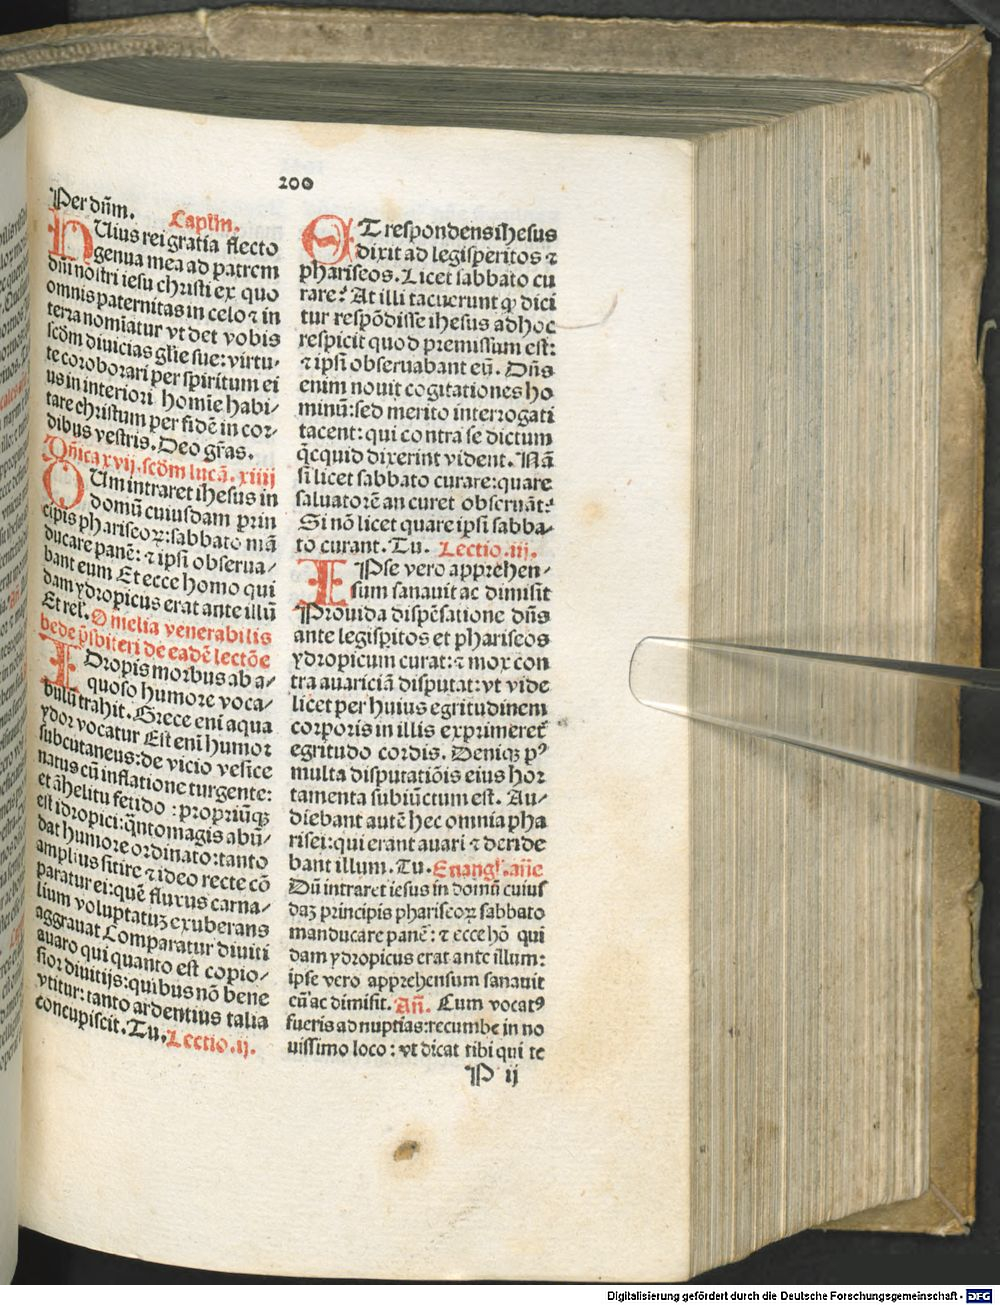 200
Per dñm. Capłm.
HUius rei gratia flecto
genua mea ad patrem
dñi nostri iesu christi ex quo
omnis paternitas in celo ⁊ in
terra nomĩatur vt det vobis
scðm diuicias glĩe sue: virtu⸗
te coroborari per spiritum ei
us in interiori homĩe habi⸗
tare christum per fidẽ in cor⸗
dibus vestris. Deo gr̃as.
Dñica xvij. scðm lucã. xiiij
CUm intraret ihesus in
domũ cuiusdam prin
cipis phariseoꝝ: sabbato mã
ducare panẽ: ⁊ ipsi obserua⸗
bant eum Et ecce homo qui
dam ydropicus erat ante illũ
Et rel'. Omelia venerabilis
bede p̄sbiteri de eadẽ lectõe
IDropis morbus ab a⸗
quoso humore voca⸗
bulũ trahit. Grece eni aqua
ydor vocatur Est eni humor
subcutaneus: de vicio vesice
natus cũ inflatione turgente:
et ãhelitu fetido: propriũqꝫ
est idropici: q̃ntomagis abũ⸗
dat humore ordinato: tanto
amplius sitire ⁊ ideo recte cõ
paratur ei: quẽ fluxus carna⸗
lium voluptatuꝫ exuberans
aggrauat Comparatur diuiti
auaro qui quanto est copio⸗
sior diuitijs: quibus nõ bene
vtitur: tanto ardentius talia
concupiscit. Tu. Lectio .ij.
ET respondens ihesus
dixit ad legisperitos ⁊
phariseos. Licet sabbato cu
rare? At illi tacuerunt ꝙ dici
tur respõdisse ihesus ad hoc
respicit quod premissum est:
⁊ ipsi obseruabant eũ. Dñs
enim nouit cogitationes ho
minũ: sed merito interrogati
tacent: qui contra se dictum
q̃cquid dixerint vident. Nã
si licet sabbato curare: quare
saluatorẽ an curet obseruãt?
Si nõ licet quare ipsi sabba⸗
to curant. Tu. Lectio .iij.
IPse vero apprehen⸗
sum sanauit ac dimisit
Prouida dispẽsatione dñs
ante legisp̱itos et phariseos
ydropicum curat: ⁊ mox con
tra auariciã disputat: vt vide
licet per huius egritudinem
corporis in illis exprimeret̃
egritudo cordis. Deniqꝫ pꝰ
multa disputatiõis eius hor
tamenta subiũctum est. Au⸗
diebant autẽ hec omnia pha
risei: qui erant auari ⁊ deride
bant illum. Tu. Euangł. añe
Dũ intraret iesus in domũ cuius
daꝫ principis phariseoꝝ sabbato
manducare panẽ: ⁊ ecce hõ qui
dam ydropicus erat ante illum:
ipse vero apprehensum sanauit
eũ ac dimisit. Añ. Cum vocatꝰ
fueris ad nuptias: recumbe in no
uissimo loco: vt dicat tibi qui te
P ij
Digitalisierung gefördert durch die Deutsche Forschungsgemeinschaft - DFG